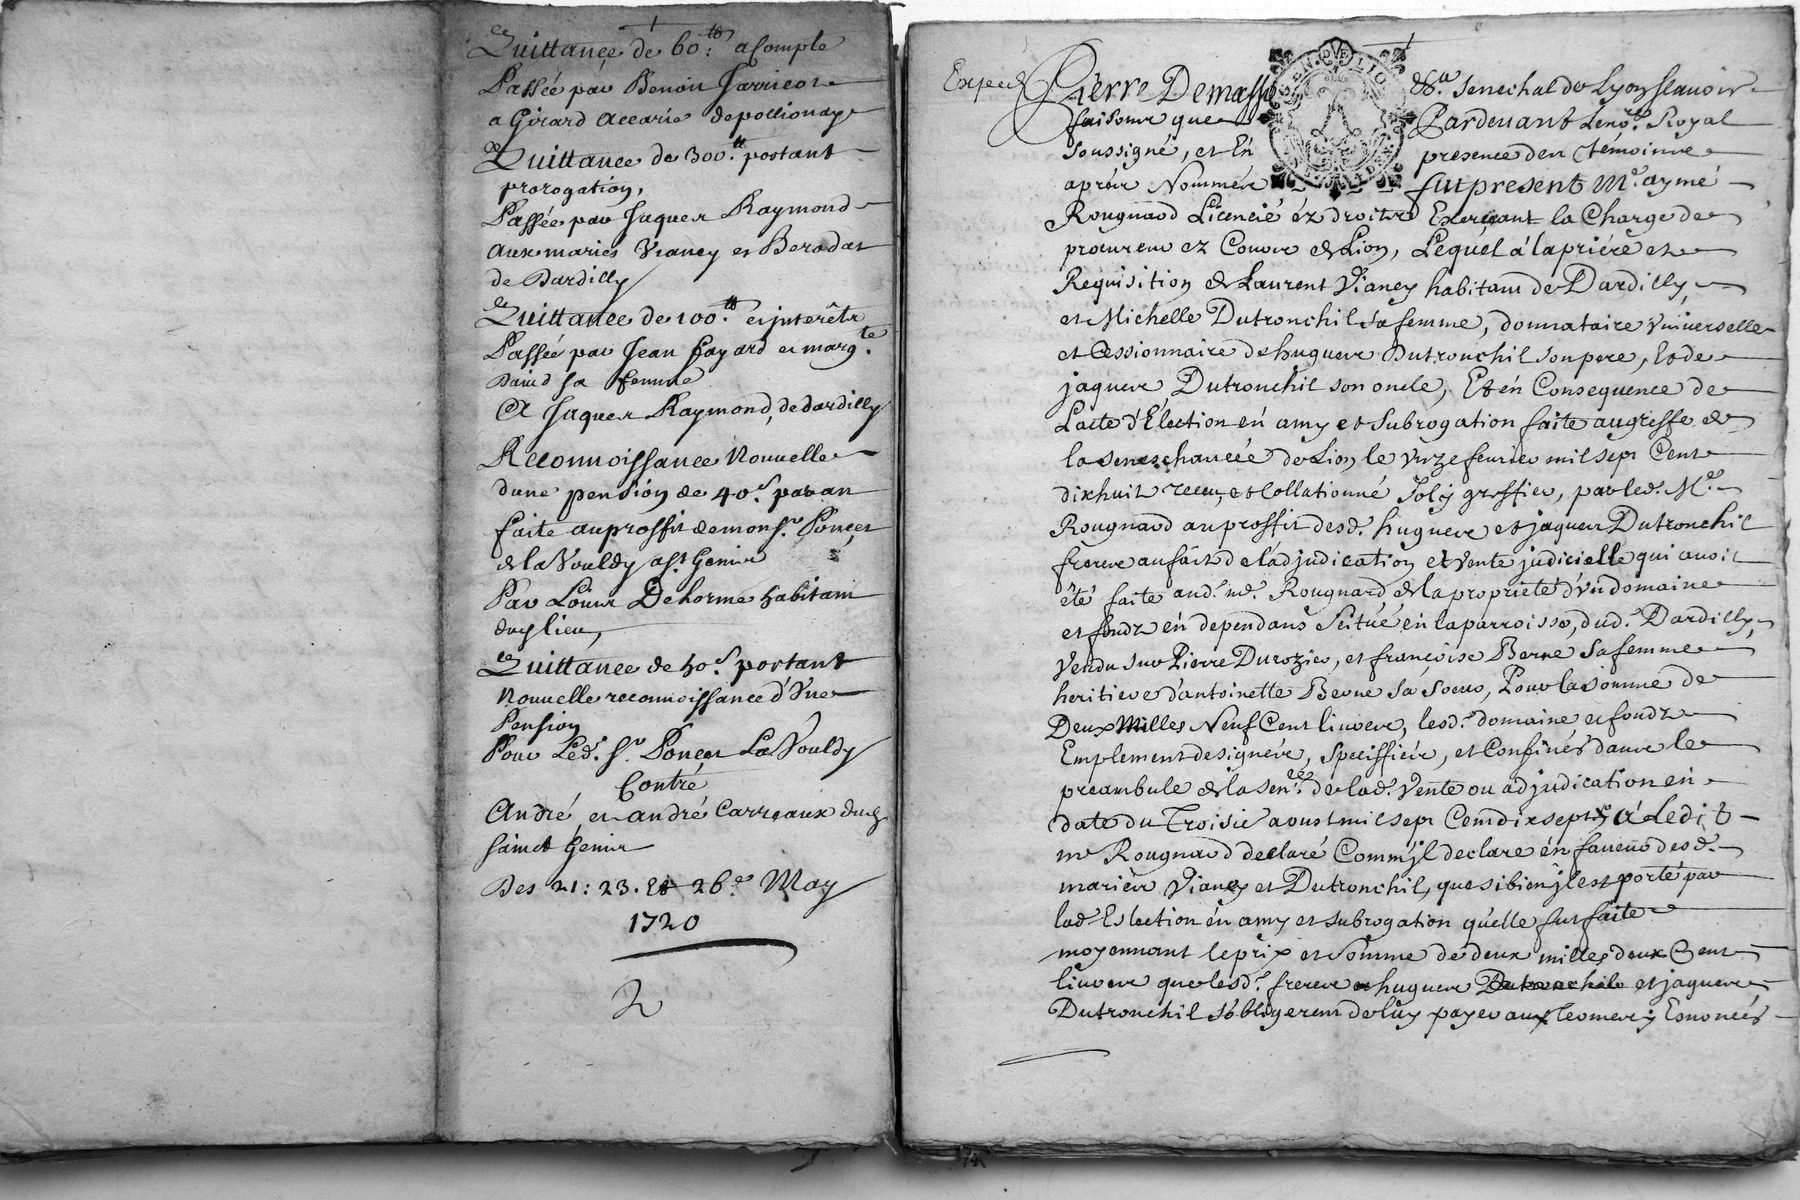 Quittance de 60.tt acompte
Passée par Benoit Jarricot
a Girard Accarie depollionay
Quittance de 300.tt portant
prorogation,
Passée par Jaques Raymond
Aux mariés Vianey et Berodat
de Dardilly
Quittance de 100.tt et jnterêts
Passée par Jean Fayard et marg.te
sa femme
A Jaques Raymond, de dardilly
Reconnoissance Nouvelle
dune pension de 40.s par an
faite au proffit de mons.r Ponçet
de la Vouldy a st Genis
Par Louis Dehorme habitant
dud lieu,
Quittance de 50.s portant
Nouvelle reconnoissance d'Vne
Pension
Pour Led. s.r Ponçet La Vouldy
Contre
André, et andré Carreaux dud
sainct Genis
Des 21: 23. Et 26.e May
1720
2
Exped
Pierre Demasso &.a senechal de Lyon sçavoir
faisons que Pardeuant Le no.re Royal
soussigné, et En presence des témoins
apres Nommés fut present M.e aymé
Rougnard Licencié éz droits Exerçant la Charge de
procureur ez Cours de Lion, Lequel à la priére et
Requisition de Laurent Vianey habitant de Dardilly,
et Michelle Dutronchil sa femme, donnataire Vniverselle
et Cessionnaire de hugues Dutronchil son pere, Et de
jaques Dutronchil son oncle, Et én Consequence de
L'acte d'Election én amy et subrogation faite au greffe de
la seneschaucée de Lion le Vnze feurier mil sept Cent
dixhuit receu, et Collationné Joly greffier, par led. M.e
Rougnard au proffit desd. hugues et jaques Dutronchil
freres au fait de l'adjudication et Vente judicielle qui auoit
êté faite aud. m.e Rougnard de la proprieté d'Vn domaine
et fondz én dependans Scitué én la parroisse, dud. Dardilly,
Vendu sur Pierre Durozier, et françoise Berne sa femme
heritiere d'antoinette Berne sa soeur, Pour la somme de
Deux Milles Neuf Cent liures, lesd. domaine et fondz
Emplement designés, speciffiés, et Confinés dans le
preambule de la sen.ce de lad. Vente ou adjudication en
date du Troisie aoust mil sept Cent dixsept, A Ledit
m.e Rougnard declaré Comm'jl declare én faueur desd.
mariés Vianey et Dutronchil, que si bien jl est porté par
lad. Eslection én amy et subrogation qu'elle fut faite
moyennant le prix et somme de deux milles deux Cent
liures que lesd. freres hugues et jaques
Dutronchil s'obligerent de luy payer aux termes y Enoncés